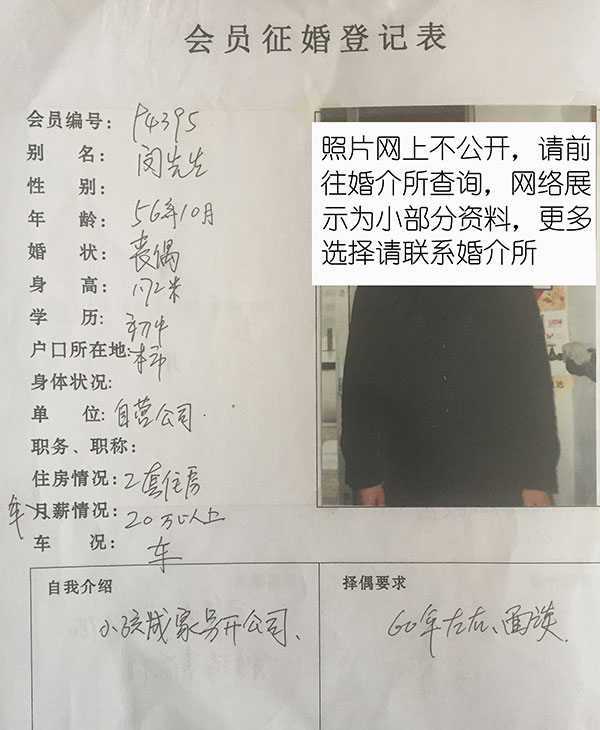 会员征婚登记表
会员编号: P4395
别 名: 闵先生
性 别:
年 龄: 56年10月
婚 状: 丧偶
身 高: 1.72米
学 历: 初中
户口所在地: 本市
身体状况:
单 位: 自营公司.
职务、职称:
住房情况: 2套住房
年 月薪情况: 20万以上
车 况: 车
照片网上不公开，请前
往婚介所查询，网络展
示为小部分资料，更多
选择请联系婚介所
自我介绍
小孩成家另开公司.
择偶要求
60年左右、面谈.